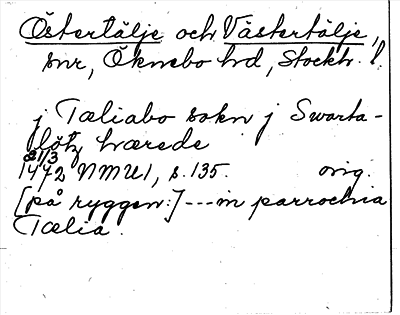 Östertälje och Västertälje,
snr, Öknebo hd, Stockh. l.
j Tæliabo sokn j Swarta-
lötz hærede
31/3
1472 NMU1, s. 135. orig.
[på ryggen:] --- in parrochia
Tælia.